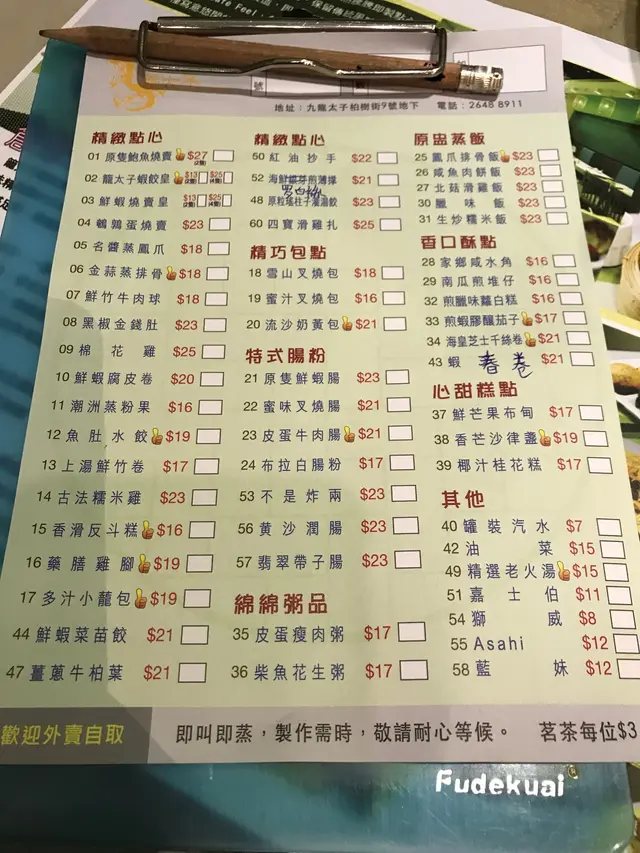 地址：九龍太子柏樹街9號地下 電話：2648 8911
精緻點心
01 原隻鮑魚燒賣 $27 (2隻)
02 龍太子蝦餃皇 $13 (2隻) $25 (4隻)
03 鮮蝦燒賣皇 $13 (2隻) $25 (4隻)
04 鵪鶉蛋燒賣 $23
05 名醬蒸鳳爪 $18
06 金蒜蒸排骨 $18
07 鮮竹牛肉球 $18
08 黑椒金錢肚 $23
09 棉花雞 $25
10 鮮蝦腐皮卷 $20
11 潮洲蒸粉果 $16
12 魚肚水餃 $19
13 上湯鮮竹卷 $17
14 古法糯米雞 $23
15 香滑反斗糕 $16
16 藥膳雞腳 $19
17 多汁小蘢包 $19
44 鮮蝦菜苗餃 $21
47 薑蔥牛柏葉 $21
精緻點心
50 紅油抄手 $22
52 海鮮 煎薄撑 $21
48 原粒瑤柱子灌湯餃 $23
60 四寶滑雞扎 $25
精巧包點
18 雪山叉燒包 $18
19 蜜汁叉燒包 $16
20 流沙奶黃包 $21
特式腸粉
21 原隻鮮蝦腸 $23
22 蜜味叉燒腸 $21
23 皮蛋牛肉腸 $21
24 布拉白腸粉 $17
53 不是炸兩 $23
56 黄沙潤腸 $23
57 翡翠帶子腸 $23
綿綿粥品
35 皮蛋瘦肉粥 $17
36 柴魚花生粥 $17
原盅蒸飯
25 鳳爪排骨飯 $23
26 咸魚肉餅飯 $23
27 北菇滑雞飯 $23
30 臘味飯 $23
31 生炒糯米飯 $23
香口酥點
28 家鄉咸水角 $16
29 南瓜煎堆仔 $16
32 煎臘味蘿白糕 $16
33 煎蝦膠釀茄子 $17
34 海皇芝士千絲卷 $21
43 蝦 春卷 $21
心甜糕點
37 鮮芒果布甸 $17
38 香芒沙律盞 $19
39 椰汁桂花糕 $17
其他
40 罐裝汽水 $7
42 油菜 $15
49 精選老火湯 $15
51 嘉士伯 $11
54 獅威 $8
55 Asahi $12
58 藍妹 $12
歡迎外賣自取 即叫即蒸，製作需時，敬請耐心等候。 茗茶每位$3
Fudekuai